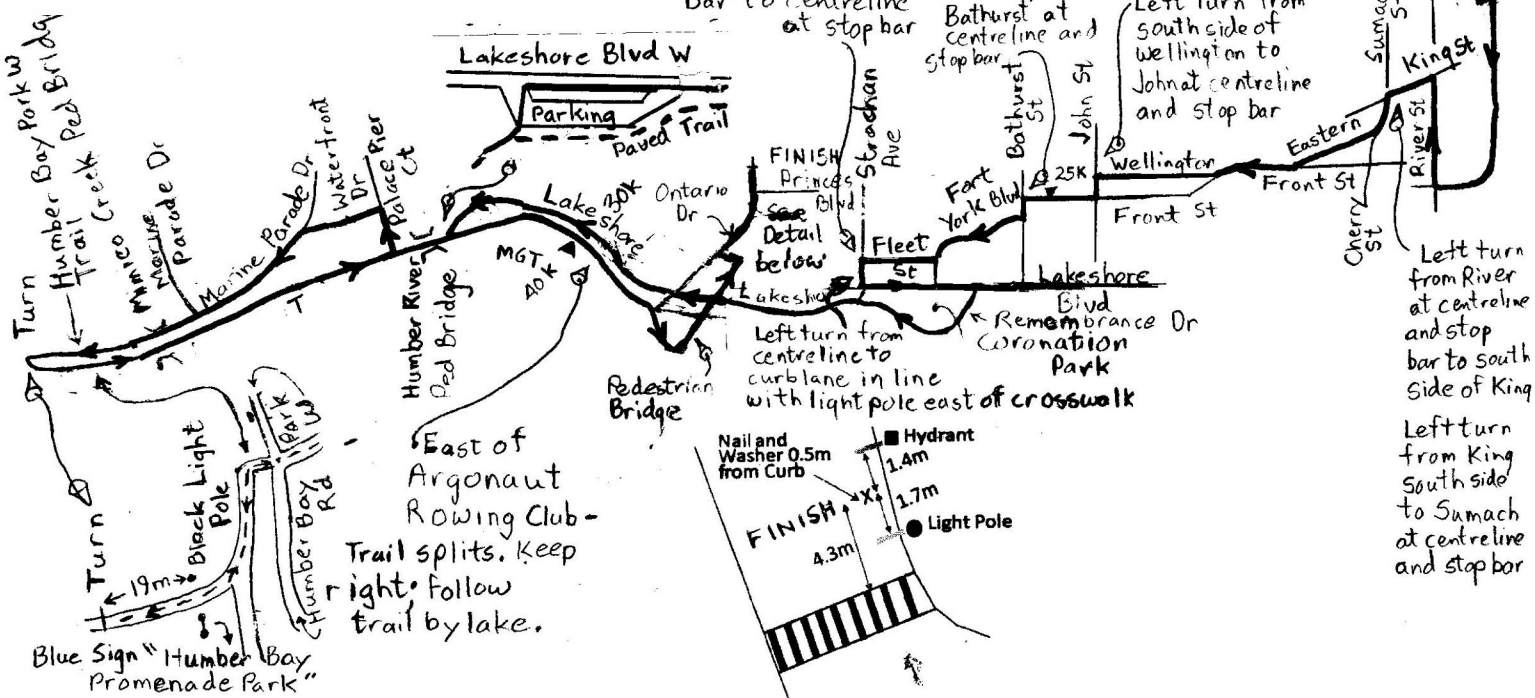 Bar to centreline
at stop bar
Bathurst at
centreline and
stop bar
Left turn from
south side of
Wellington to
John at centreline
and stop bar
Lakeshore Blvd W
Parking
Paved Trail
Turn
Humber Bay Park W
Trail
Mimico Creek Ped Bridge
Marine
Parade Dr
Marine Parade Dr
Waterfront
Dr
Palace Pier
Ct
Humber River
Ped Bridge
Lakeshore
30K
MGT K
40K
Ontario
Dr
FINISH
Princes
Blvd
See
Detail
below
Strachan
Ave
Fleet
St
Fort
York Blvd
Bathurst
St
25K
John St
Wellington
Front St
Front St
Eastern
Cherry
St
Sumac
St
King St
River St
Lakeshore
Lakeshore
Blvd
Remembrance Dr
Coronation
Park
Left turn from
centreline to
curb lane in line
with light pole east of crosswalk
Pedestrian
Bridge
Left turn
from River
at centreline
and stop
bar to south
side of King
Left turn
from King
South side
to Sumach
at centreline
and stop bar
East of
Argonaut
Rowing Club-
Trail splits. Keep
right. Follow
trail by lake.
Park
W
Humber Bay
Rd
Humber Bay
Black Light
Pole
Turn
19m
Blue Sign "Humber Bay
Promenade Park"
Nail and
Washer 0.5m
from Curb
Hydrant
1.4m
X
1.7m
FINISH
4.3m
Light Pole